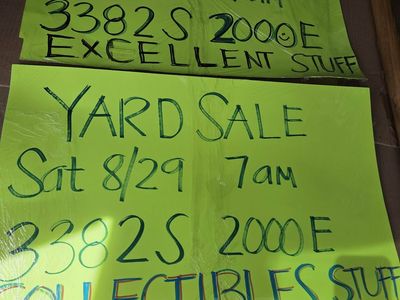 3382 S 2000 E
EXCELLENT STUFF
YARD SALE
Sat 8/29 7am
3382 S 2000 E
COLLECTIBLES STUFF